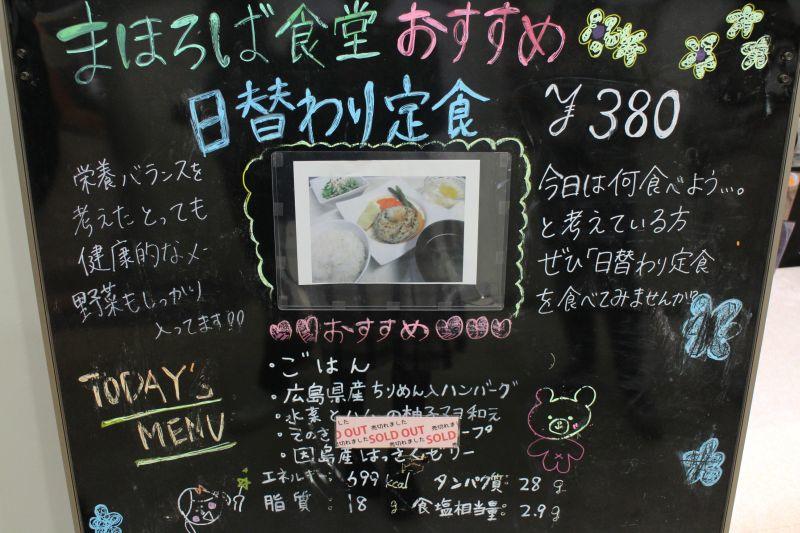 まほろば食堂 おすすめ
日替わり定食 ¥380
栄養バランスを
考えたとっても
健康的なメ-
野菜もしっかり
入ってます!!
今日は何食べよう…。
と考えている方
ぜひ「日替わり定食
を食べてみませんか?
おすすめ
TODAY's
MENU
・ごはん
・広島県産ちりめん入ハンバーグ
・水菜とハムの柚子マヨ和え
・えのき ープ
・因島産はっさくゼリー
売切れました SOLD OUT 売切れました SOLD OUT 売切れました SOLD
エネルギー: 699 kcal タンパク質: 28 g
脂質: 18 g 食塩相当量: 2.9 g